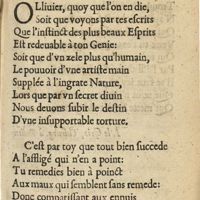 OLliuier, quoy que l'on en die,
Soit que voyons par tes escrits
Que l'instinct des plus beaux Esprits
Est redeuable à ton Genie:
Soit que d'vn zele plus qu'humain,
Le pouuoir d'vne artiste main
Supplée à l'ingrate Nature,
Lors que par vn secret diuin
Nous deuons subir le destin
D'vne insupportable torture.
C'est par toy que tout bien succede
A l'affligé qui n'en a point:
Tu remedies bien à poinct
Aux maux qui semblent sans remede:
Donc comparissant aux ennuis